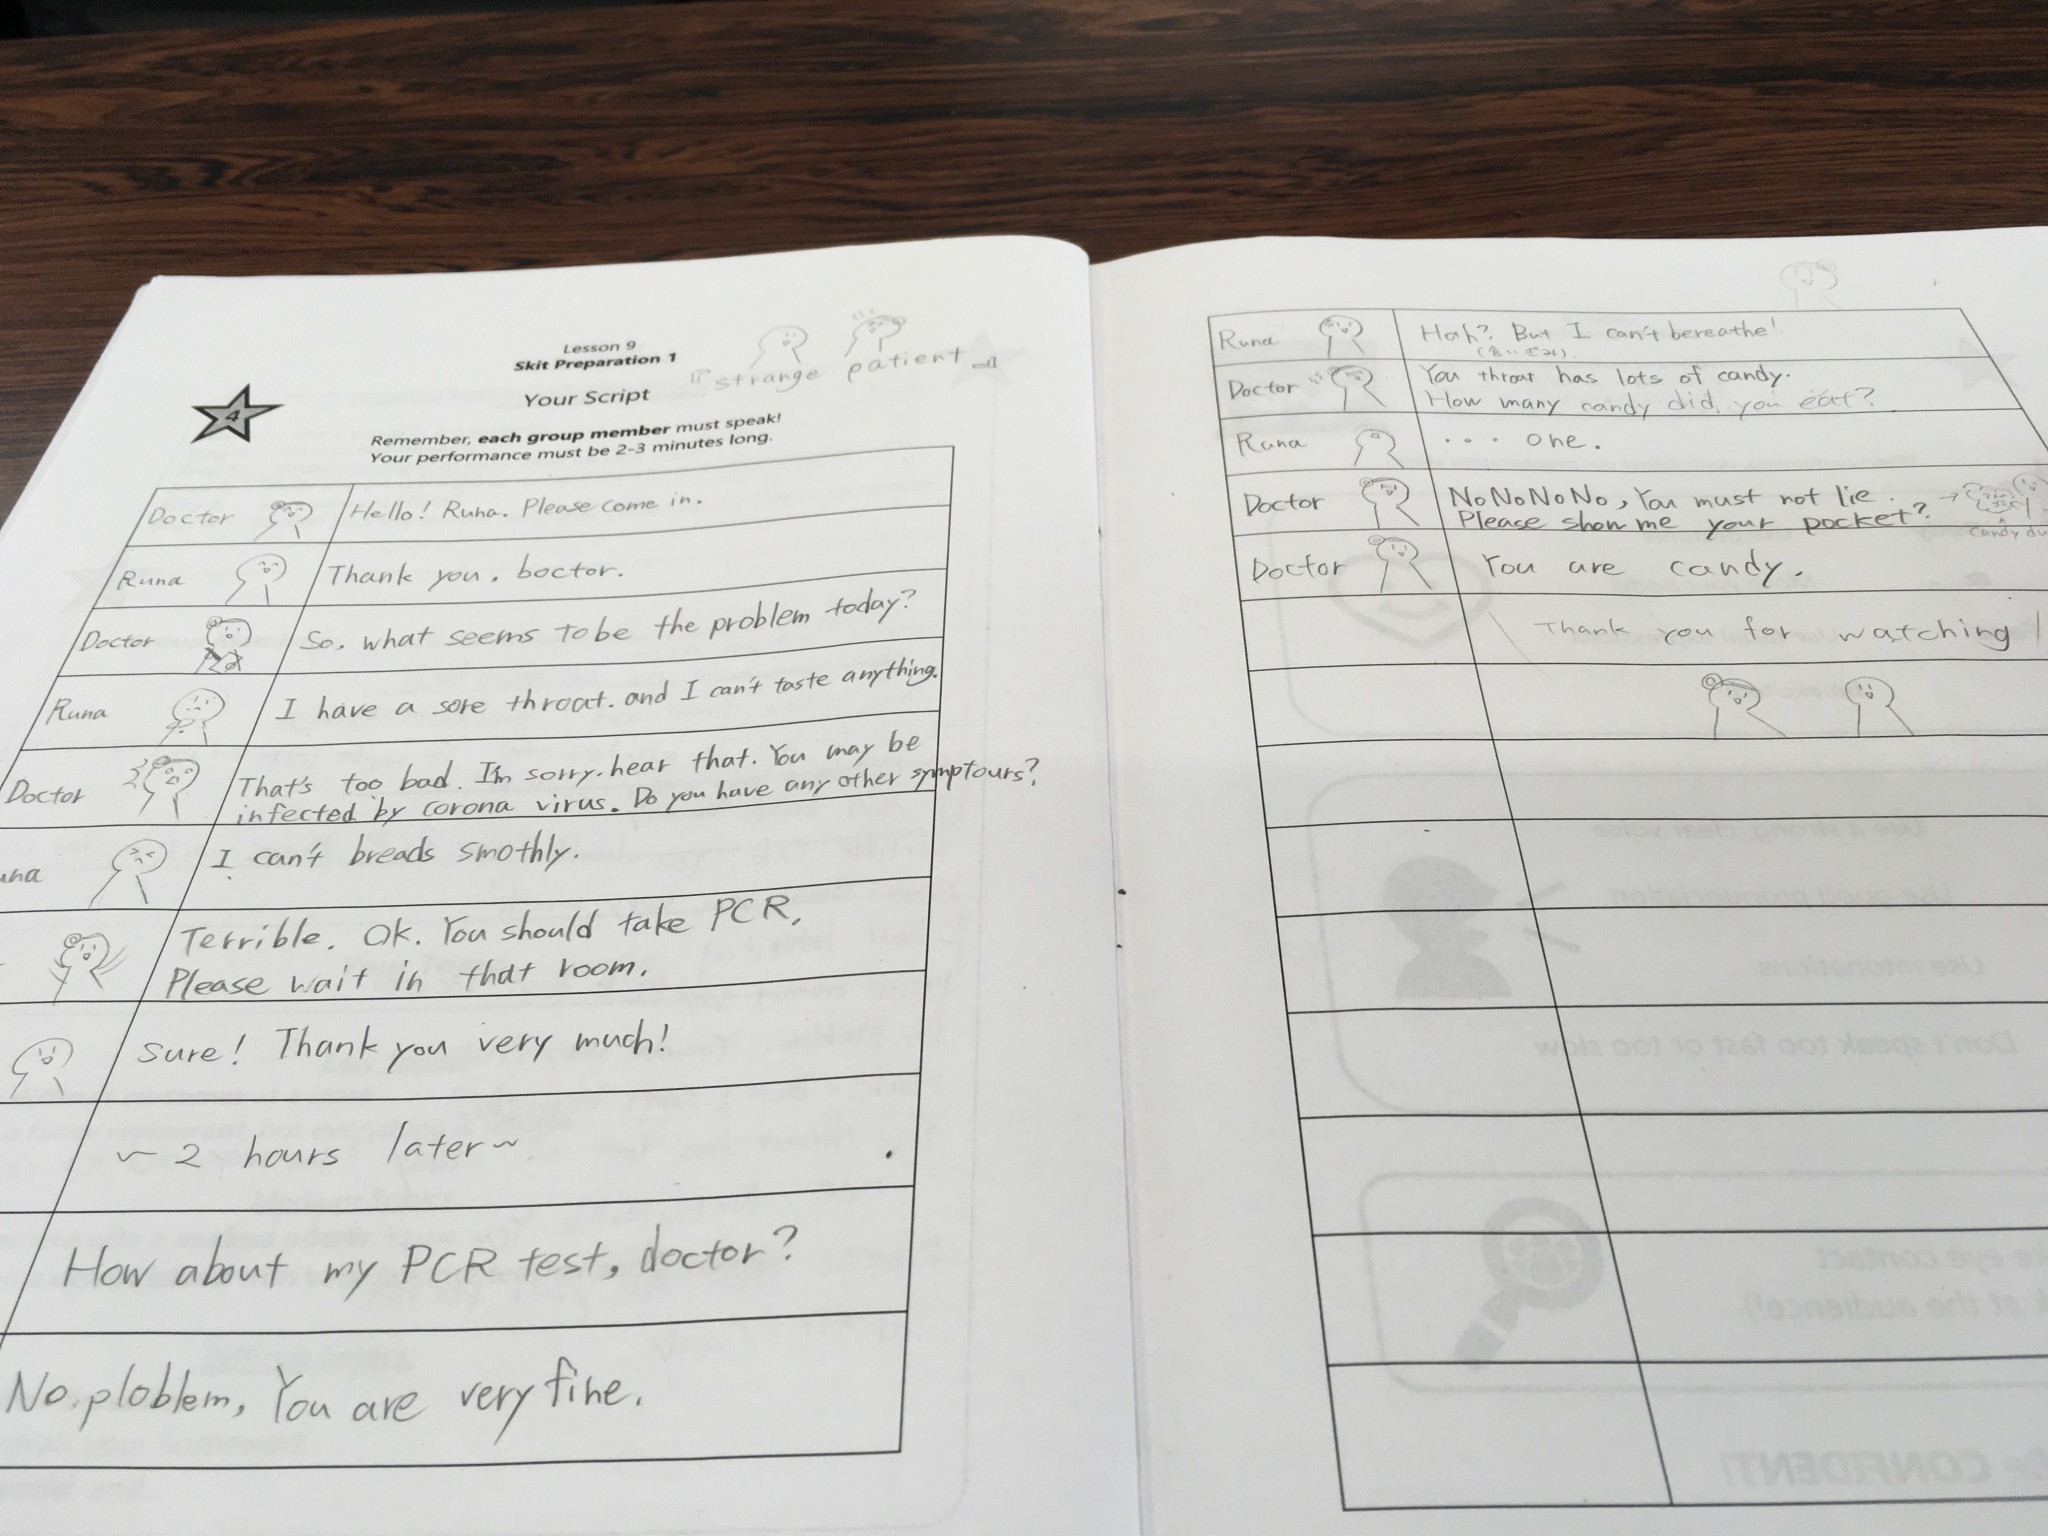 Lesson 9
Skit Preparation 1
『strange patient』
4
Your Script
Remember, each group member must speak!
Your performance must be 2-3 minutes long.
Doctor Hello! Runa. Please come in.
Runa Thank you. boctor.
Doctor So, what seems to be the problem today?
Runa I have a sore throat. and I can't taste anything.
Doctor That's too bad. I'm sorry. hear that. You may be
infected by corona virus. Do you have any other symptours?
una I can't breads smothly.
Terrible. Ok. You should take PCR,
Please wait in that room.
Sure! Thank you very much!
~ 2 hours later ~
How about my PCR test, doctor?
No, ploblem, You are very fine.
Runa Hah? But I can't bereathe!
Doctor You throat has lots of candy.
How many candy did you eat?
Runa ... one.
Doctor NoNoNoNo, You must not lie.
Please show me your pocket?
candy du
Doctor You are candy.
Thank you for watching!